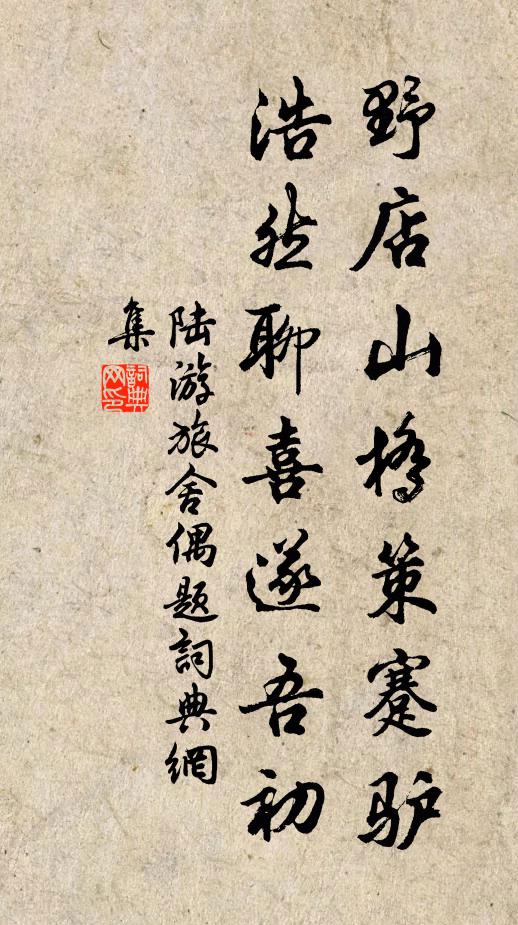 野店山桥策蹇驴
浩然聊喜遂吾初
陆游旅舍偶题詞典網
集
詞典网印